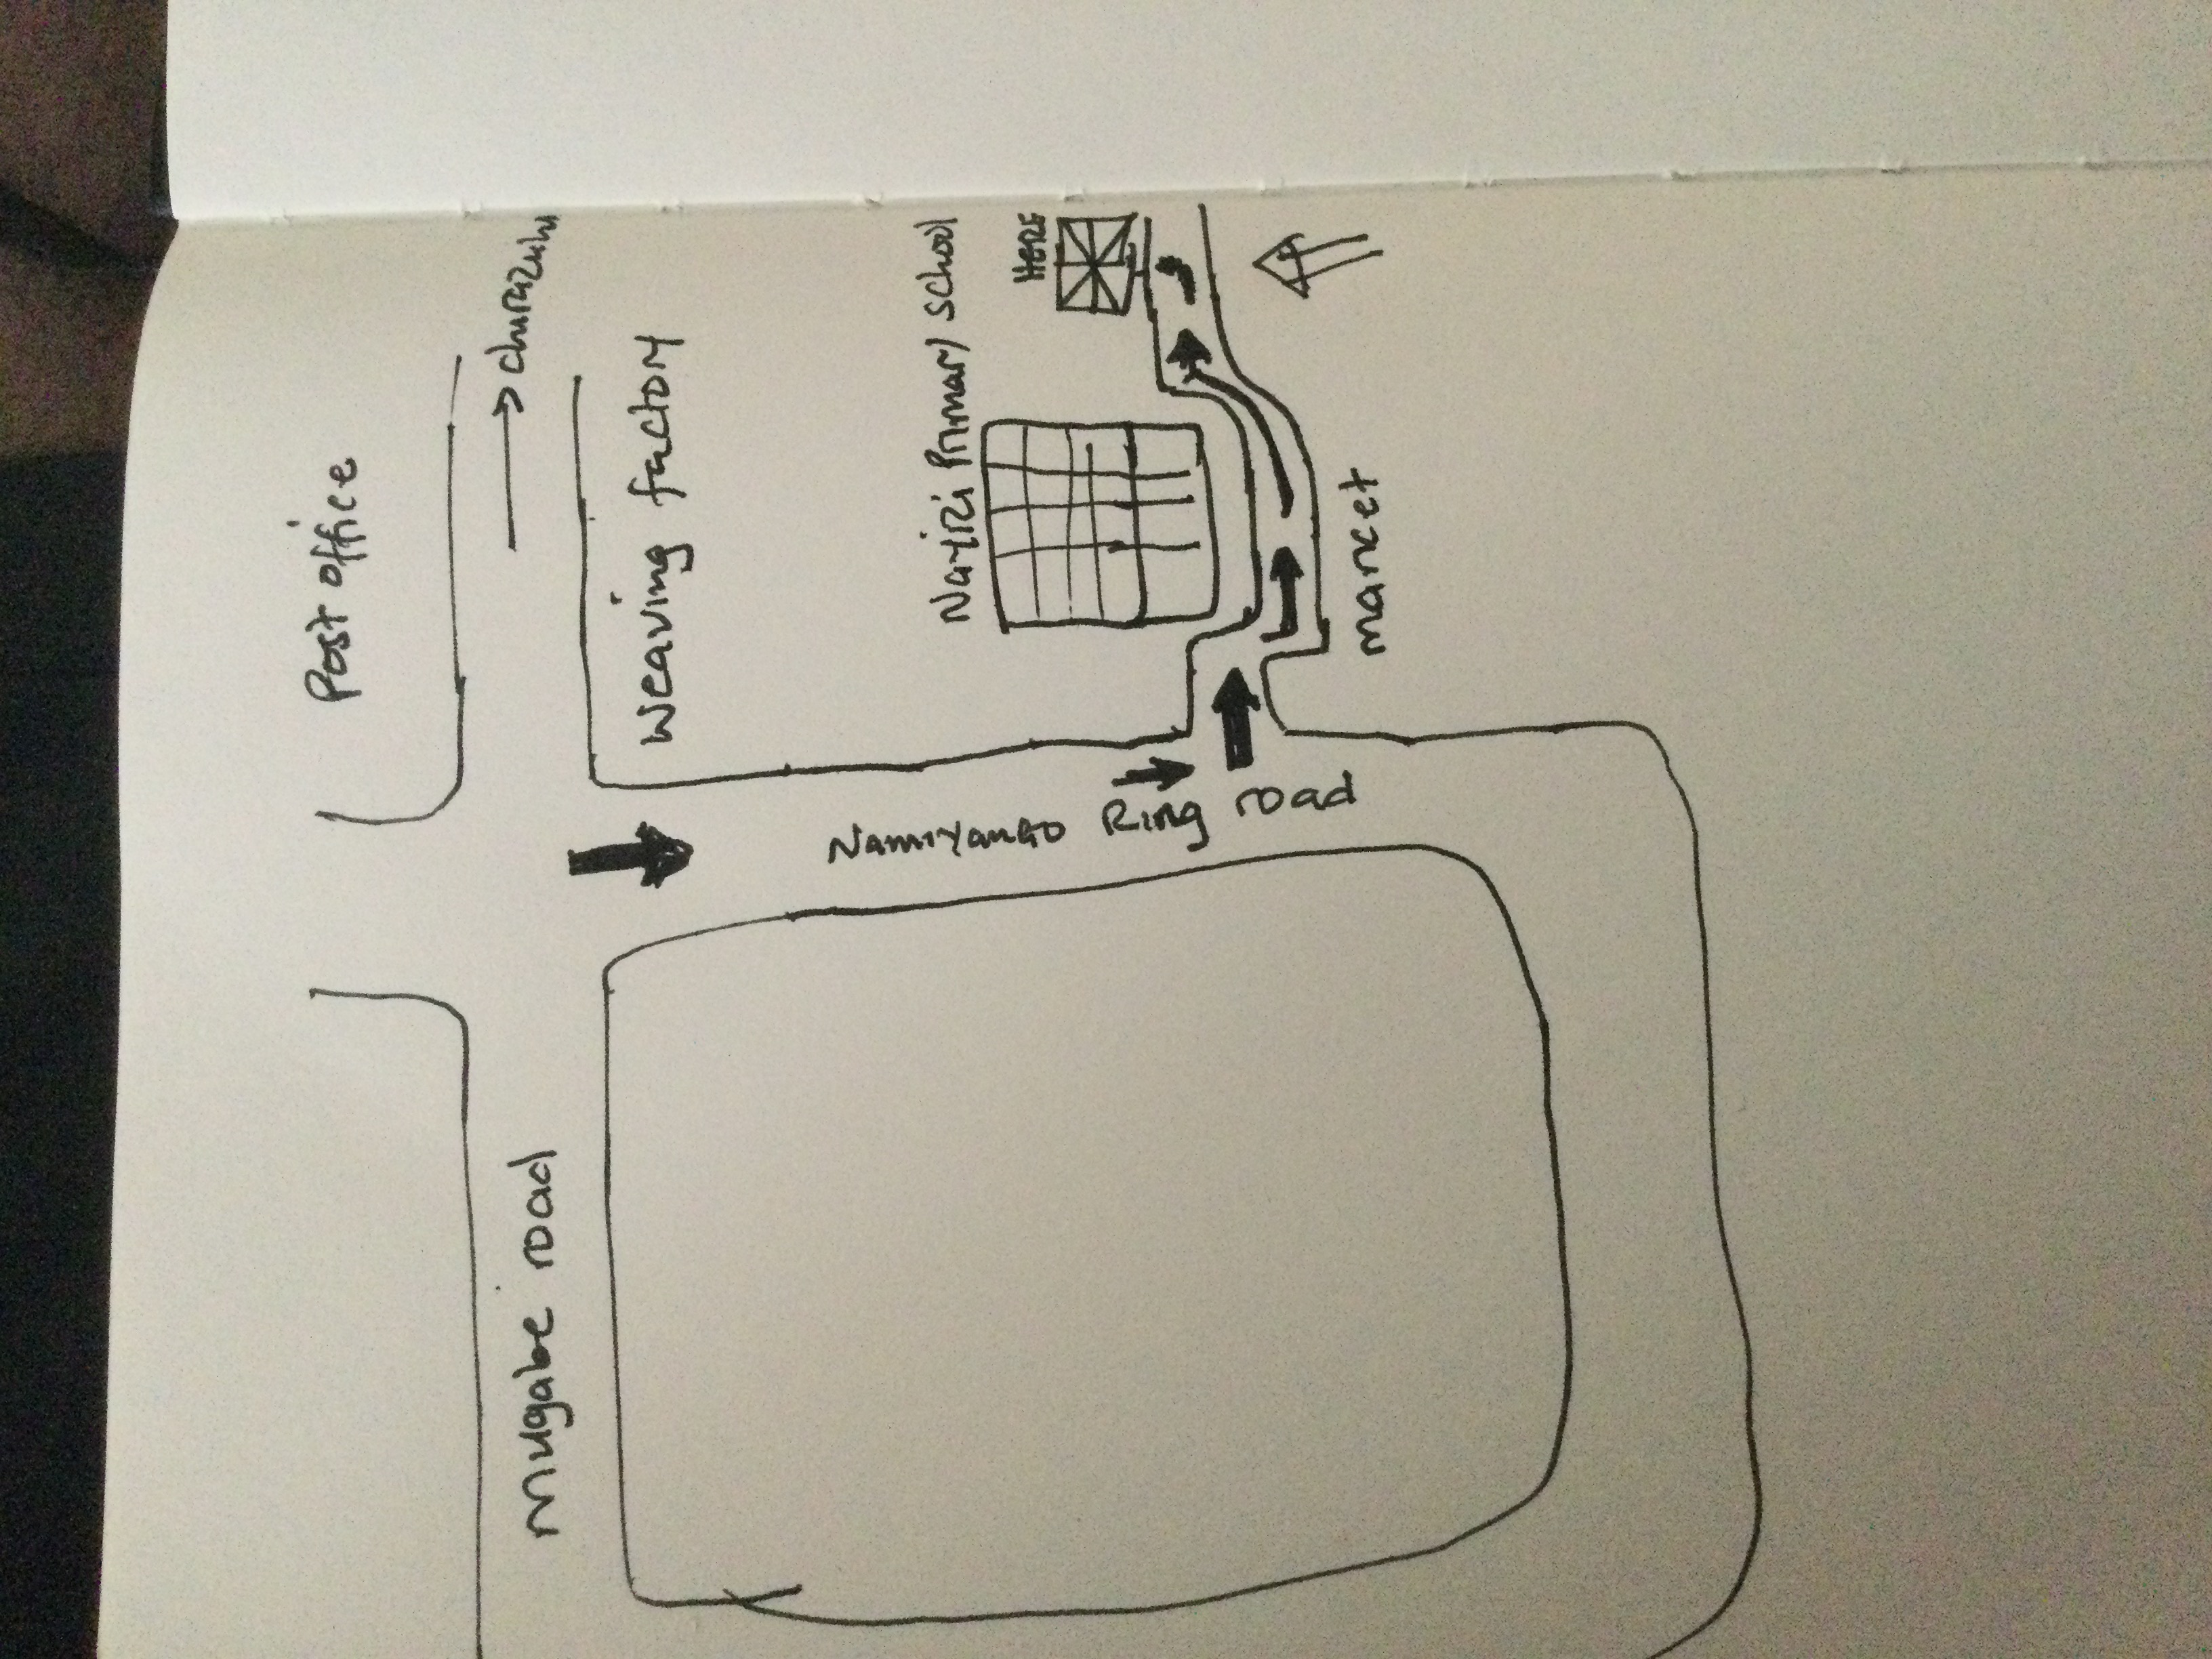 Post office
→ churazulu
weaving factory
Nayizi Primary school
HERE
market
Namiyango Ring road
mugabe road